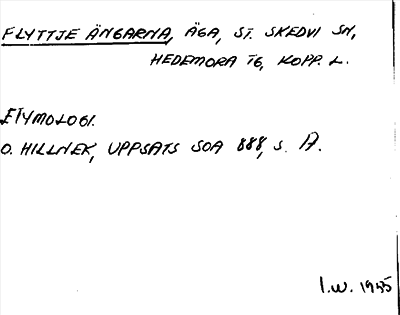 FLYTTJE ÄNGARNA, ÄGA, ST. SKEDVI SN,
HEDEMORA TG, KOPP. L.
ETYMOLOGI.
O. HILLNEK, UPPSATS SOA 888, S. A.
I.W. 1955